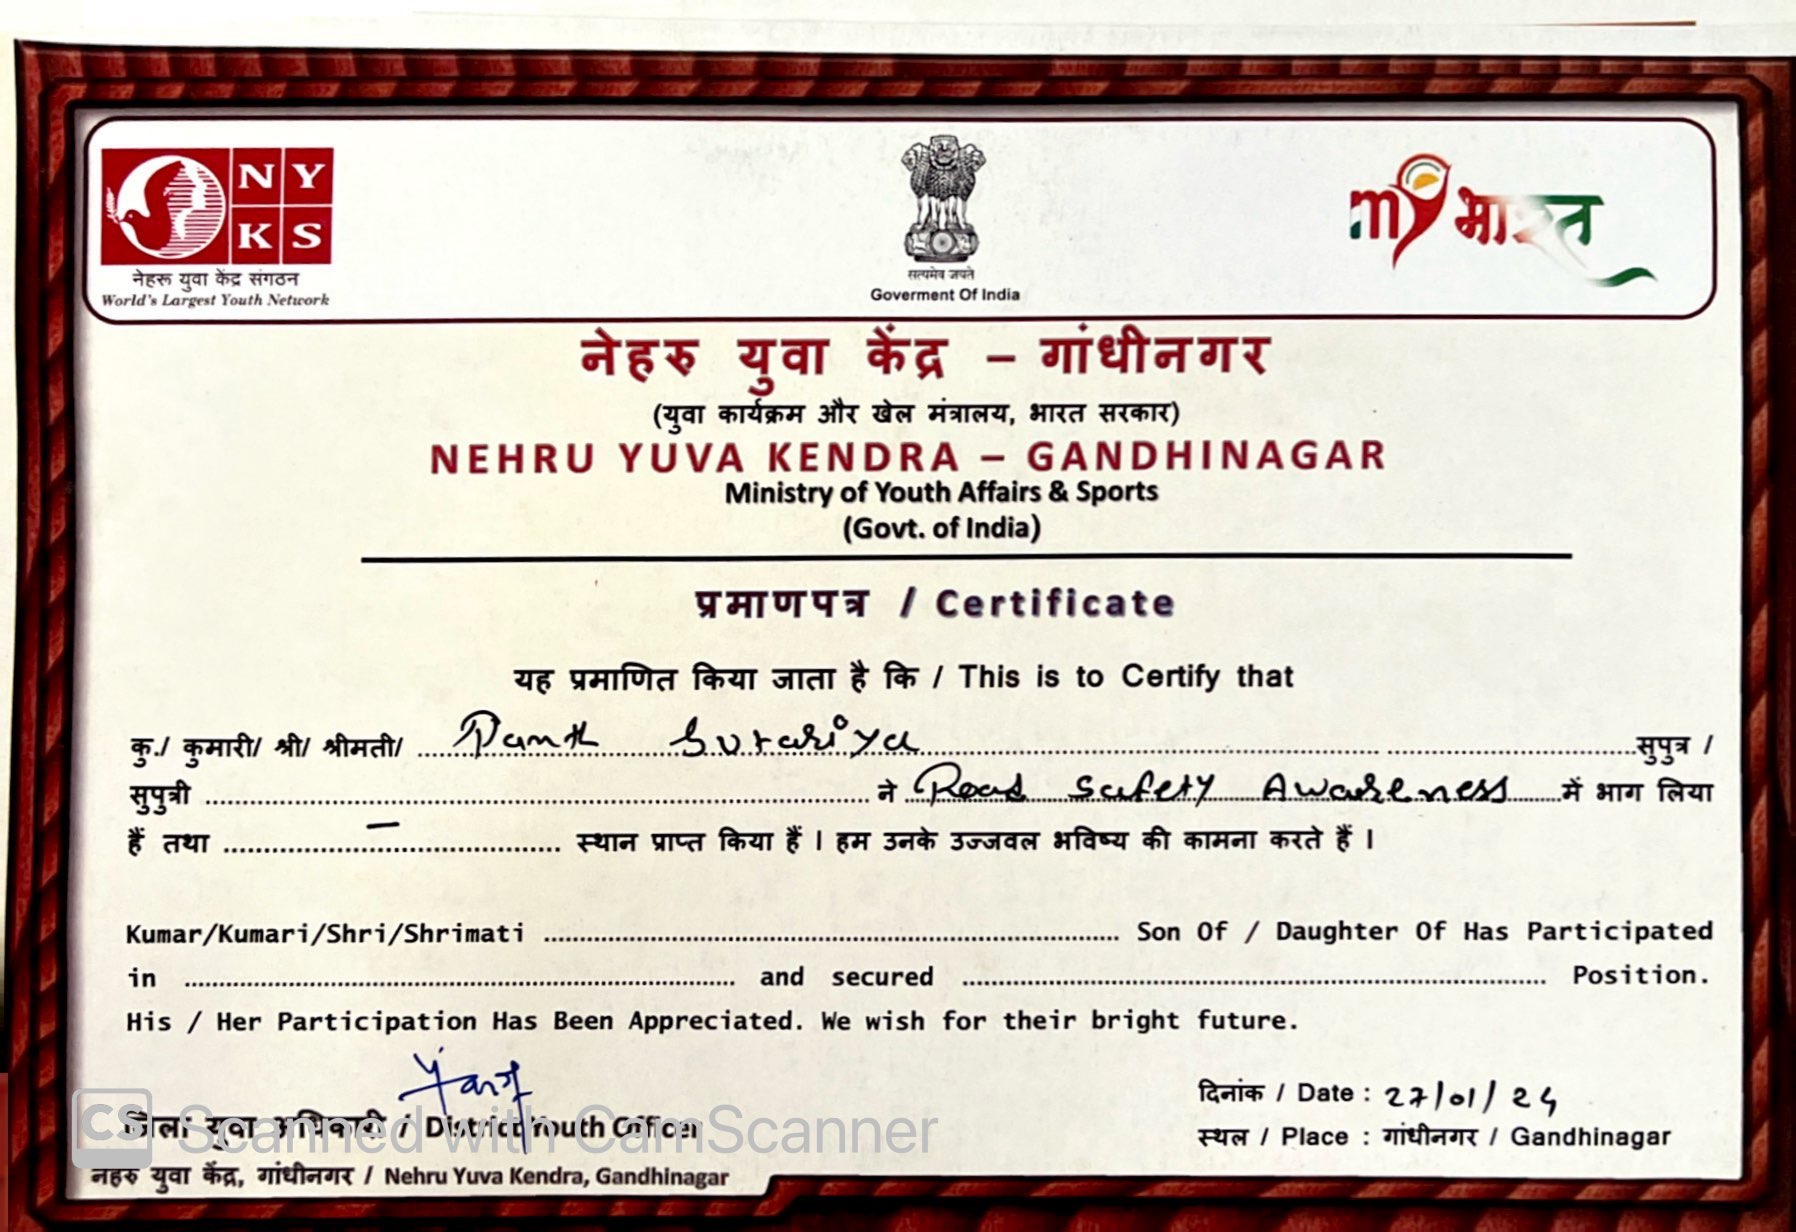 NY
KS
नेहरू युवा केंद्र संगठन
World's Largest Youth Network
सत्यमेव जयते
Goverment Of India
my भारत
नेहरु युवा केंद्र – गांधीनगर
(युवा कार्यक्रम और खेल मंत्रालय, भारत सरकार)
NEHRU YUVA KENDRA – GANDHINAGAR
Ministry of Youth Affairs & Sports
(Govt. of India)
प्रमाणपत्र / Certificate
यह प्रमाणित किया जाता है कि / This is to Certify that
कु./ कुमारी/ श्री/ श्रीमती/ Panth Sutariya सुपुत्र /
सुपुत्री ने Road Safety Awareness में भाग लिया
हैं तथा – स्थान प्राप्त किया हैं । हम उनके उज्जवल भविष्य की कामना करते हैं ।
Kumar/Kumari/Shri/Shrimati Son Of / Daughter Of Has Participated
in and secured Position.
His / Her Participation Has Been Appreciated. We wish for their bright future.
दिनांक / Date : 27/01/24
जिला युवा अधिकारी / District Youth Officer
CS Scanned with CamScanner
स्थल / Place : गांधीनगर / Gandhinagar
नहरु युवा केंद्र, गांधीनगर / Nehru Yuva Kendra, Gandhinagar